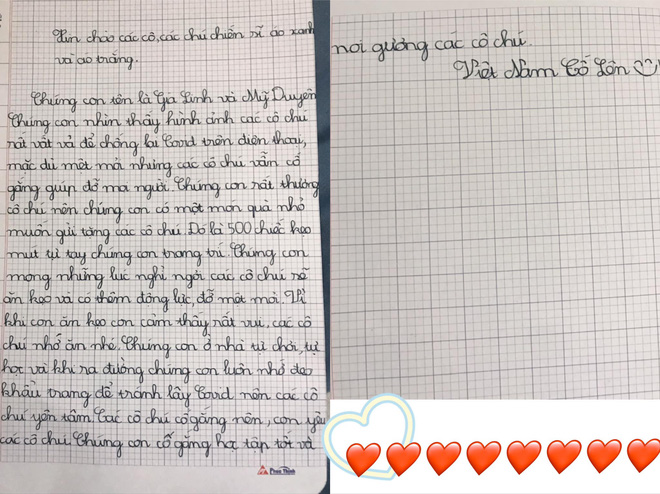 Xin chào các cô, các chú chiến sĩ áo xanh
và áo trắng.
Chúng con tên là Gia Linh và Mỹ Duyên
Chúng con nhìn thấy hình ảnh các cô chú
rất vất vả để chống lại Covid trên điện thoại,
mặc dù mệt mỏi nhưng các cô chú vẫn cố
gắng giúp đỡ mọi người. Chúng con rất thương
cô chú nên chúng con có một món quà nhỏ
muốn gửi tặng các cô chú. Đó là 500 chiếc kẹo
mút tự tay chúng con trang trí. Chúng con
mong những lúc nghỉ ngơi các cô chú sẽ
ăn kẹo và có thêm động lực, đỡ mệt mỏi. Vì
khi con ăn kẹo con cảm thấy rất vui, các cô
chú nhớ ăn nhé. Chúng con ở nhà tự chơi, tự
học và khi ra đường chúng con luôn nhớ đeo
khẩu trang để tránh lây Covid nên các cô
chú yên tâm. Các cô chú cố gắng nên, con yêu
các cô chú. Chúng con cố gắng học tập tốt và
noi gương các cô chú.
Việt Nam Cố Lên